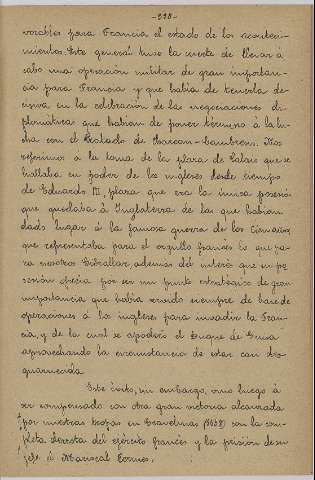 -298-
vorables para Francia el estado de los aconteci-
mientos. Este general tuvo la suerte de llevar á
cabo una operación militar de gran importan-
cia para Francia y que había de tenerla de-
cisiva en la celebración de las negociaciones di-
plomáticas que habían de poner término á la lu-
cha con el Tratado de Chateau-Cambresis. Nos
referimos á la toma de la plaza de Calais que se
hallaba en poder de los ingleses desde tiempo
de Eduardo III, plaza que era la única posesión
que quedaba á Inglaterra de las que habían
dado lugar á la famosa guerra de los Cien años,
que representaba para el orgullo francés lo que pa-
ra nosotros Gibraltar, además del interés que su po-
sesión ofrecía por ser un punto estratégico de gran
importancia que había servido siempre de base de
operaciones á los ingleses para invadir la Fran-
cia, y de la cual se apoderó el Duque de Guisa
aprovechando la circunstancia de estar casi des-
guarnecida.
Este éxito, sin embargo, vino luego á
ser compensado con otra gran victoria alcanzada
por nuestras tropas en Gravelinas (1558) con la com-
pleta derrota del ejército francés y la prisión de su
jefe el Mariscal Termes.